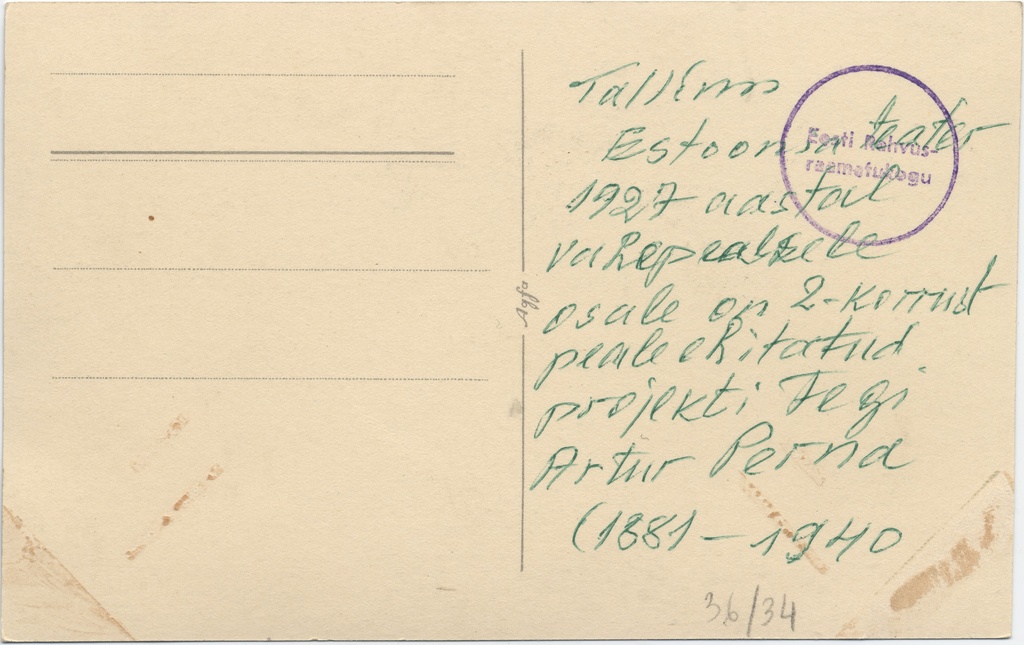 Tallinn
Estoonia teater
1927 aastal
vahepealsele
osale on 2-korrust
peale ehitatud
projekti Tegi
Artur Perna
(1881 – 1940
Eesti Rahvus-
raamatukogu
36/34